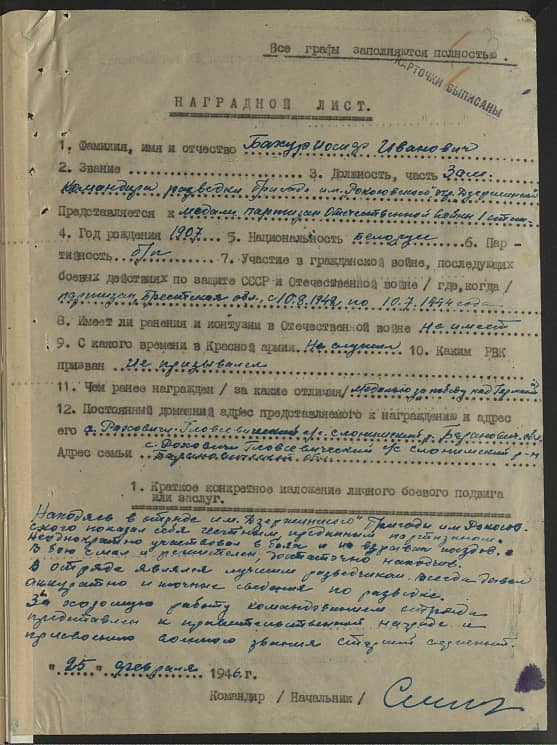 Все графы заполняются полностью.
КАРТОЧКИ ВЫПИСАНЫ
НАГРАДНОЙ ЛИСТ.
1. Фамилия, имя и отчество Бахур Иосиф Иванович
2. Звание 3. Должность, часть Зам.
командира разведки бригады им. Рокосовского отр. Дзержинский
Представляется к медали партизан Отечественной войны I степ.
4. Год рождения 1907 5. Национальность белорус 6. Пар -
тийность б/п 7. Участие в гражданской войне, последующих
боевых действиях по защите СССР и Отечественной войне / где, когда /
партизан Брестская обл. с 10.8.1942 по 10.7.1944 года
8. Имеет ли ранения и контузии в Отечественной войне Не имеет
9. С какого времени в Красной армии Не служил 10. Каким РВК
призван Не призывался
11. Чем ранее награжден / за какие отличия/ медалью за победу над
12. Постоянный домашний адрес представляемого к награждению и адрес
его с/с слонимский р.
Адрес семьи с. с/с слонимский р-н
обл.
1. Краткое конкретное изложение личного боевого подвига
или заслуг.
Находясь в отряде им. Дзержинского Бригады им. Рокосов-
ского показал себя честным, преданным партизаном.
Неоднократно участвовал в боях и на взрывах поездов.
В бою смел и решителен, достаточно находчив.
В отряде являлся лучшим разведчиком. Всегда давал
аккуратно и точные сведения по разведке.
За хорошую работу командованием отряда
представлен к правительственной награде и
присвоению военного звания старший сержант.
" 25 " февраля 1946 г.
Командир / Начальник /